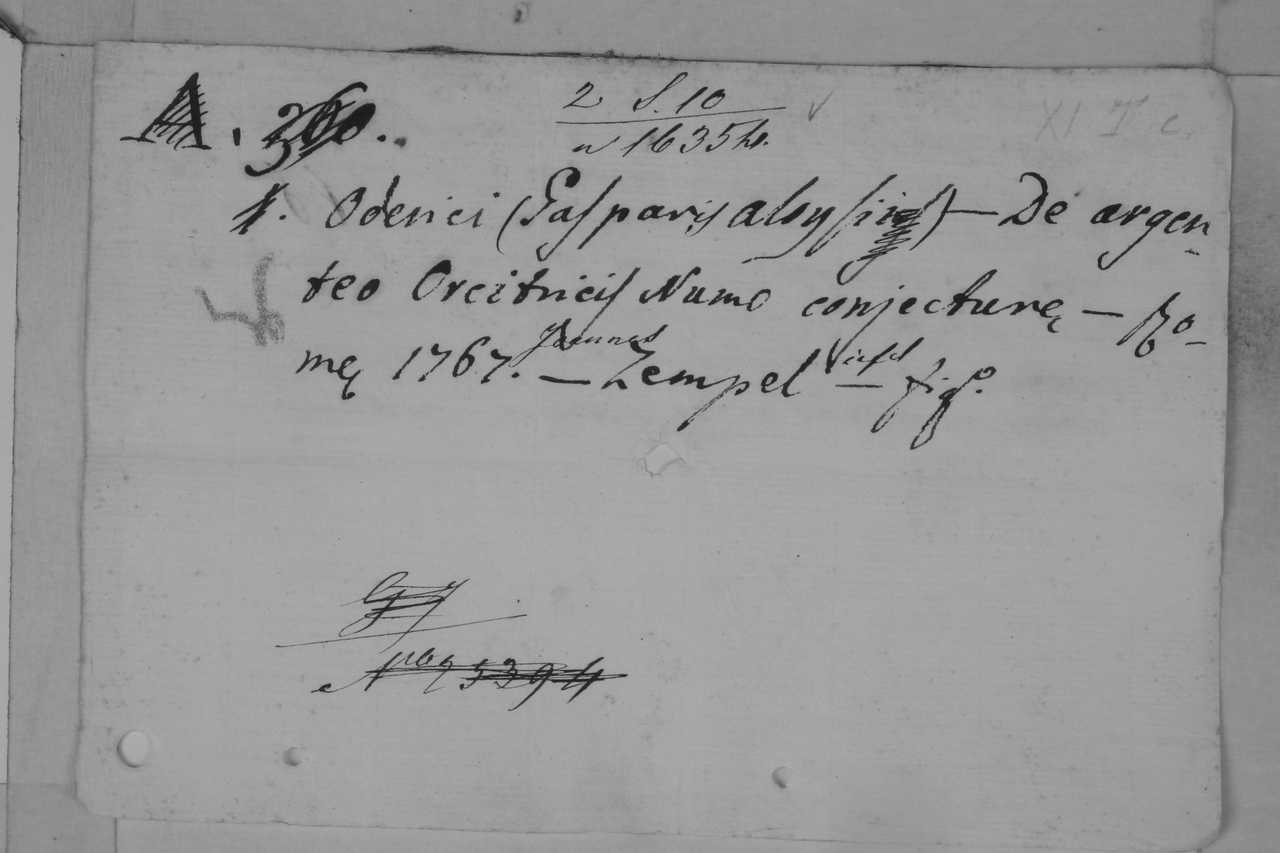 A. 360.
2 S. 10
n 16354.
XI I c.
1. Oderici (Gasparis aloysii) — De argen-
teo Orcitricis Numo conjecturę — Ro-
mę 1767. — Joannes Zempel — fig.º
Nro 25394